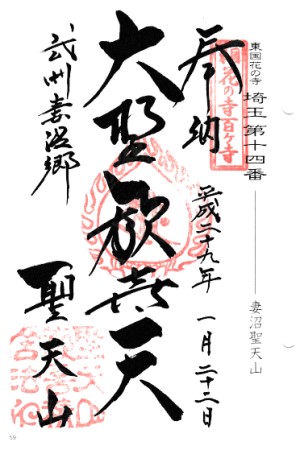 東国花の寺 埼玉第十四番 妻沼聖天山
奉納
花の寺百ヶ寺
平成二十九年 一月二十二日
大聖歓喜天
武州妻沼郷
聖天山